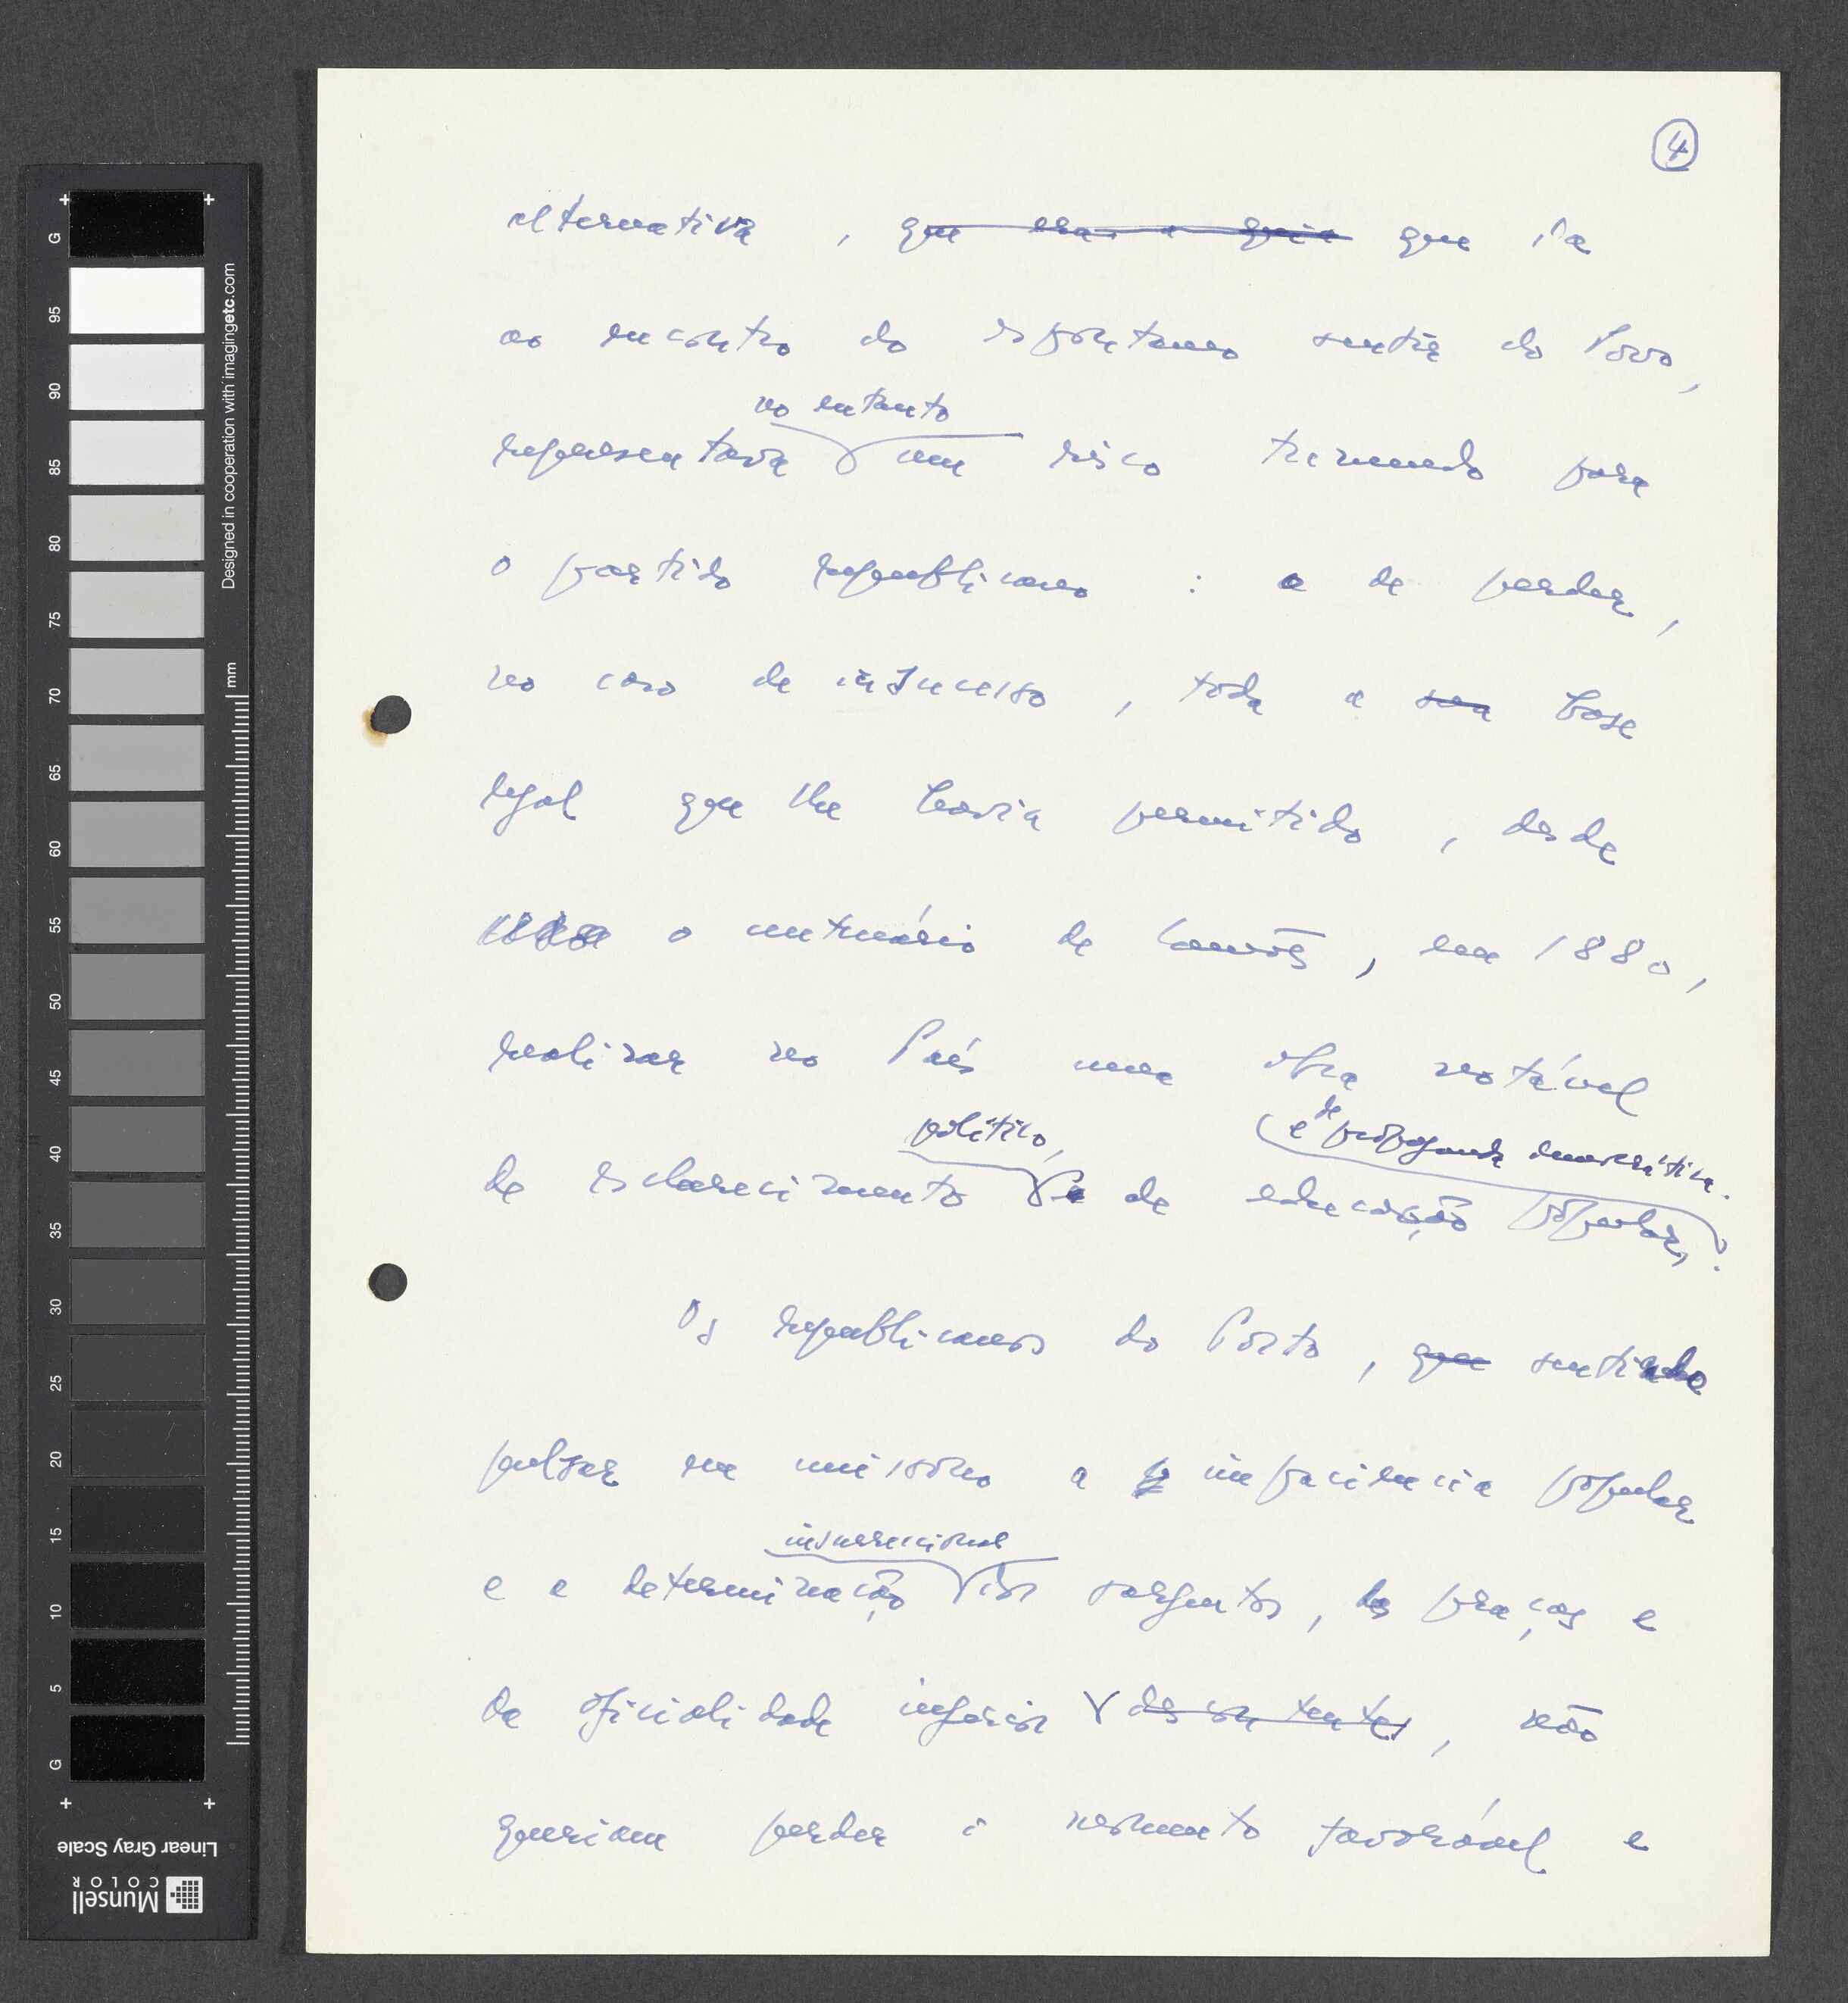 4
alternativa , que era a que ia
ao encontro do espontaneo sentir do Povo,
no entanto
representava um risco tremendo para
o partido republicano : o de perder,
no caso de insucesso , toda a sua base
legal que lhe havia permitido , desde
o centenário de Camões , em 1880,
realizar no País uma obra notável
político, e de propaganda democrática.
de esclarecimento e de educação popular.
Os republicanos do Porto , que sentindo
pulsar em uníssono a impaciencia popular
insurreccional
e a determinação dos sargentos, das praças e
da oficialidade inferior descontentes, não
queriam perder o momento favorável e
G
95
90
85
80
75
70
65
60
55
50
45
40
35
30
25
20
15
10
5
G
mm
Designed in cooperation with imagingetc.com
Linear Gray Scale
Munsell
COLOR